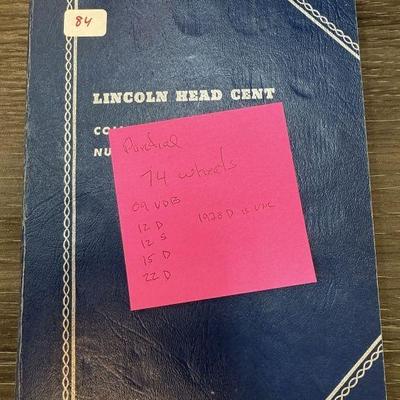 84
LINCOLN HEAD CENT
CO
NU
74 wheats
09 VDB
12 D
12 S
15 D
22 D
1928 D is UNC